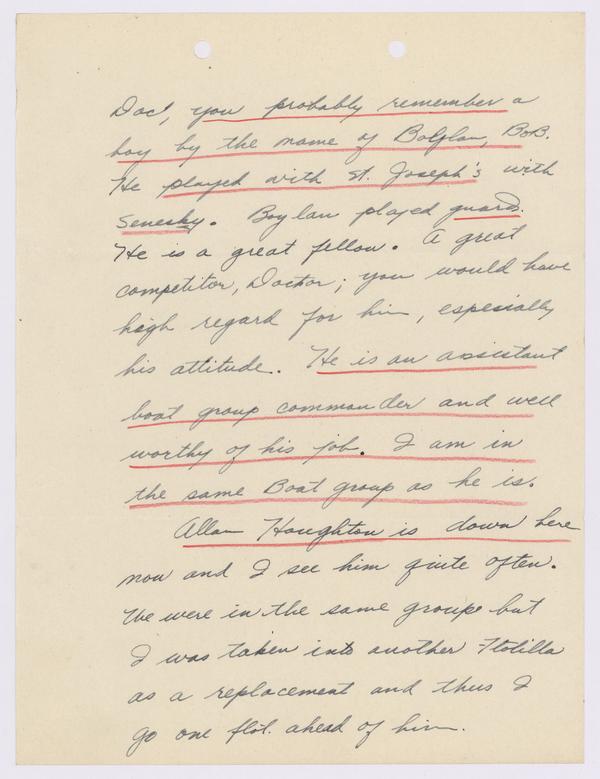 Doc, you probably remember a
boy by the name of Bolylan, Bob.
He played with St. Joseph's with
Senesky. Boylan played guard.
He is a great fellow. A great
competitor, Doctor; you would have
high regard for him, especially
his attitude. He is an assistant
boat group commander and well
worthy of his job. I am in
the same Boat group as he is.
Allan Houghton is down here
now and I see him quite often.
We were in the same groupe but
I was taken into another Flotilla
as a replacement and thus I
go one flot. ahead of him.